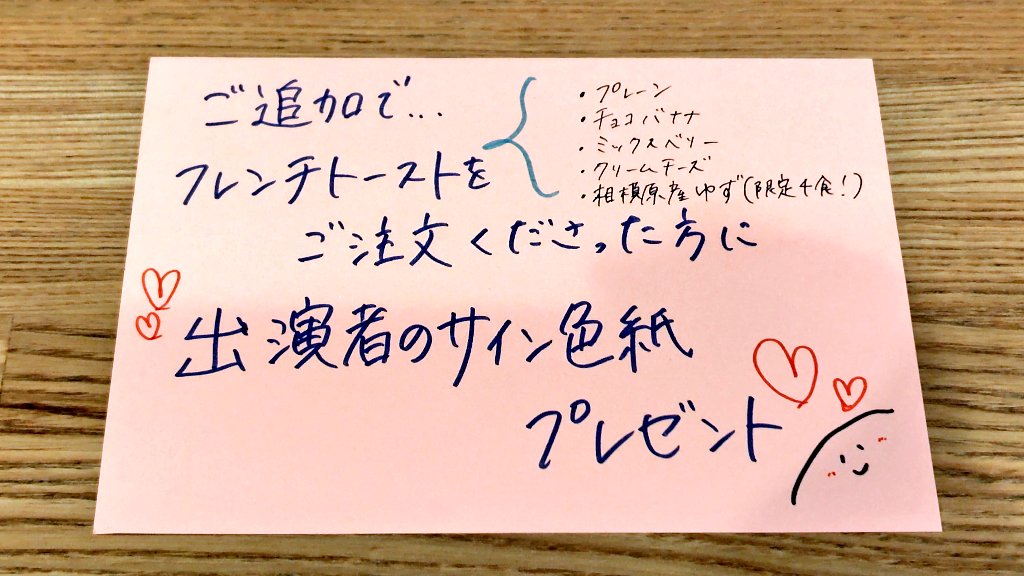 ご追加で...
フレンチトーストを
・プレーン
・チョコバナナ
・ミックスベリー
・クリームチーズ
・相模原産ゆず(限定4食!)
ご注文くださった方に
出演者のサイン色紙
プレゼント